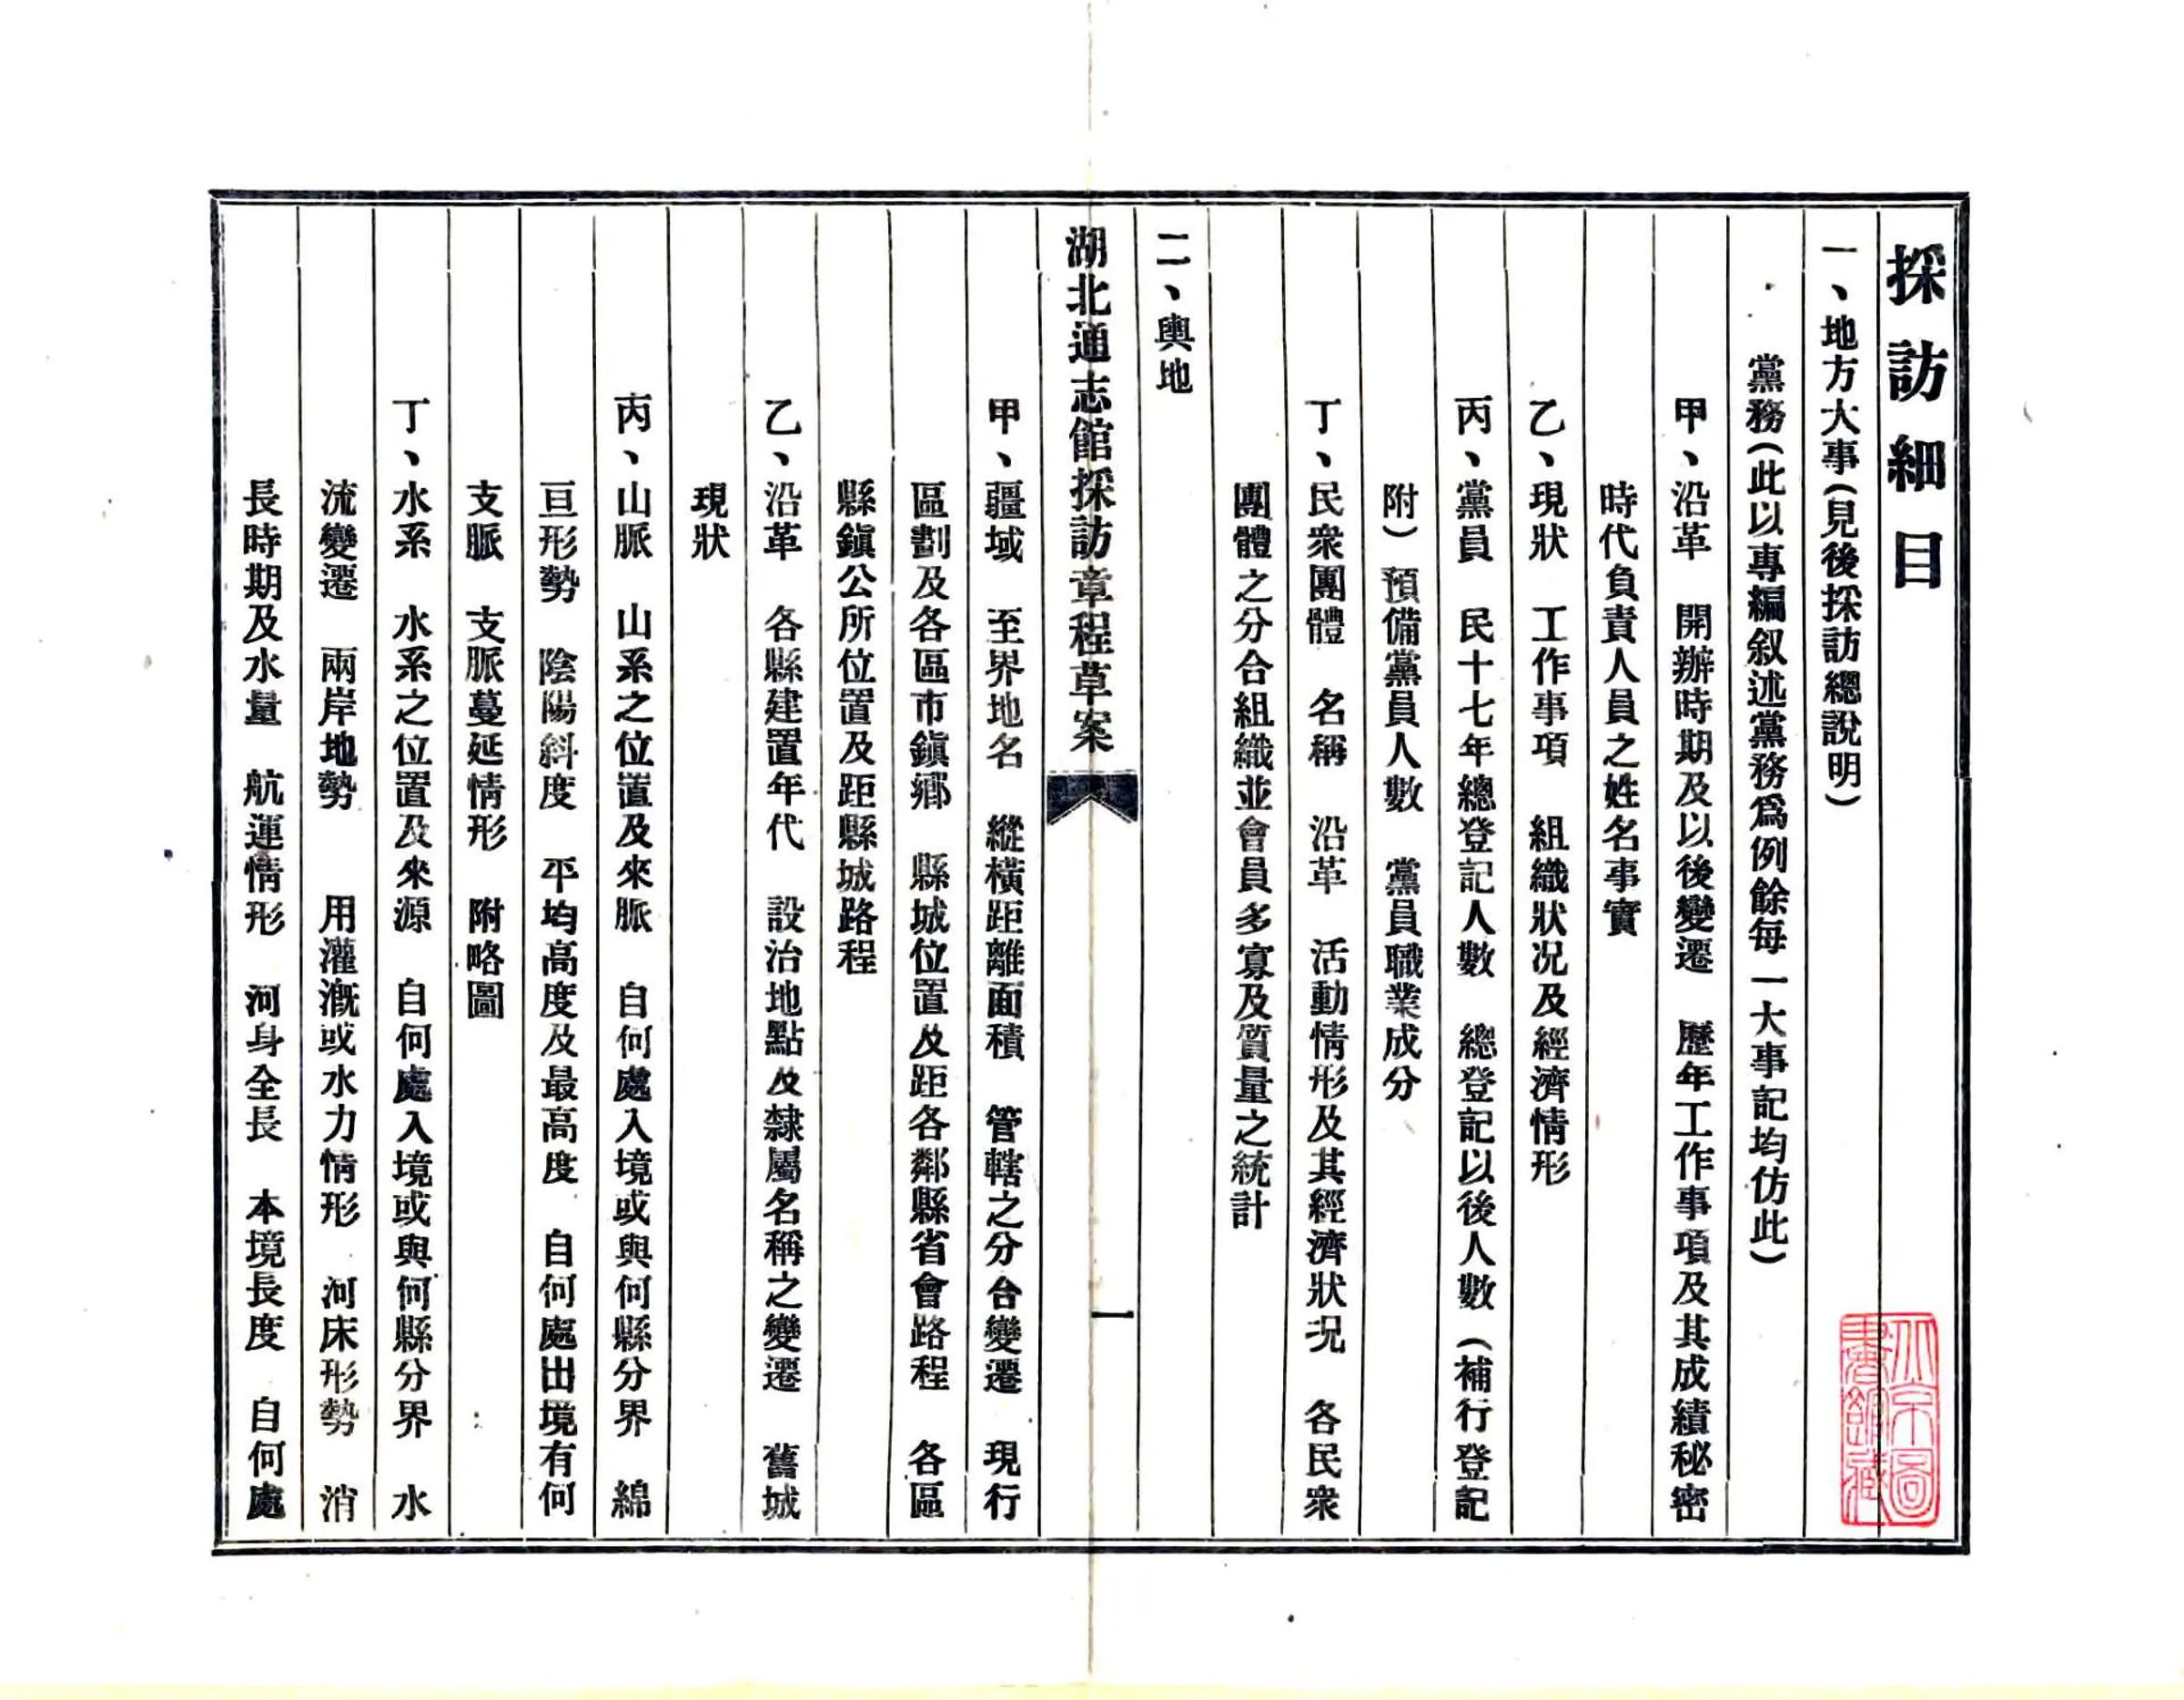 採訪細目
一、地方大事(見後採訪總說明)
黨務(此以專編叙述黨務爲例餘每一大事記均仿此)
甲、沿革　開辦時期及以後變遷　歷年工作事項及其成績秘密
時代負責人員之姓名事實
乙、現狀　工作事項　組織狀况及經濟情形
丙、黨員　民十七年總登記人數　總登記以後人數(補行登記
附)預備黨員人數　黨員職業成分
丁、民衆團體　名稱　沿革　活動情形及其經濟狀况　各民衆
團體之分合組織並會員多寡及質量之統計
二、輿地
湖北通志館採訪章程草案
一
甲、疆域　至界地名　縱橫距離面積　管轄之分合變遷　現行
區劃及各區市鎭鄉　縣城位置及距各鄰縣省會路程　各區
縣鎭公所位置及距縣城路程
乙、沿革　各縣建置年代　設治地點及隸屬名稱之變遷　舊城
現狀
丙、山脈　山系之位置及來脈　自何處入境或與何縣分界　綿
亘形勢　陰陽斜度　平均高度及最高度　自何處出境有何
支脈　支脈蔓延情形　附略圖
丁、水系　水系之位置及來源　自何處入境或與何縣分界　水
流變遷　兩岸地勢　用灌漑或水力情形　河床形勢　消
長時期及水量　航運情形　河身全長　本境長度　自何處
北京圖
書館藏